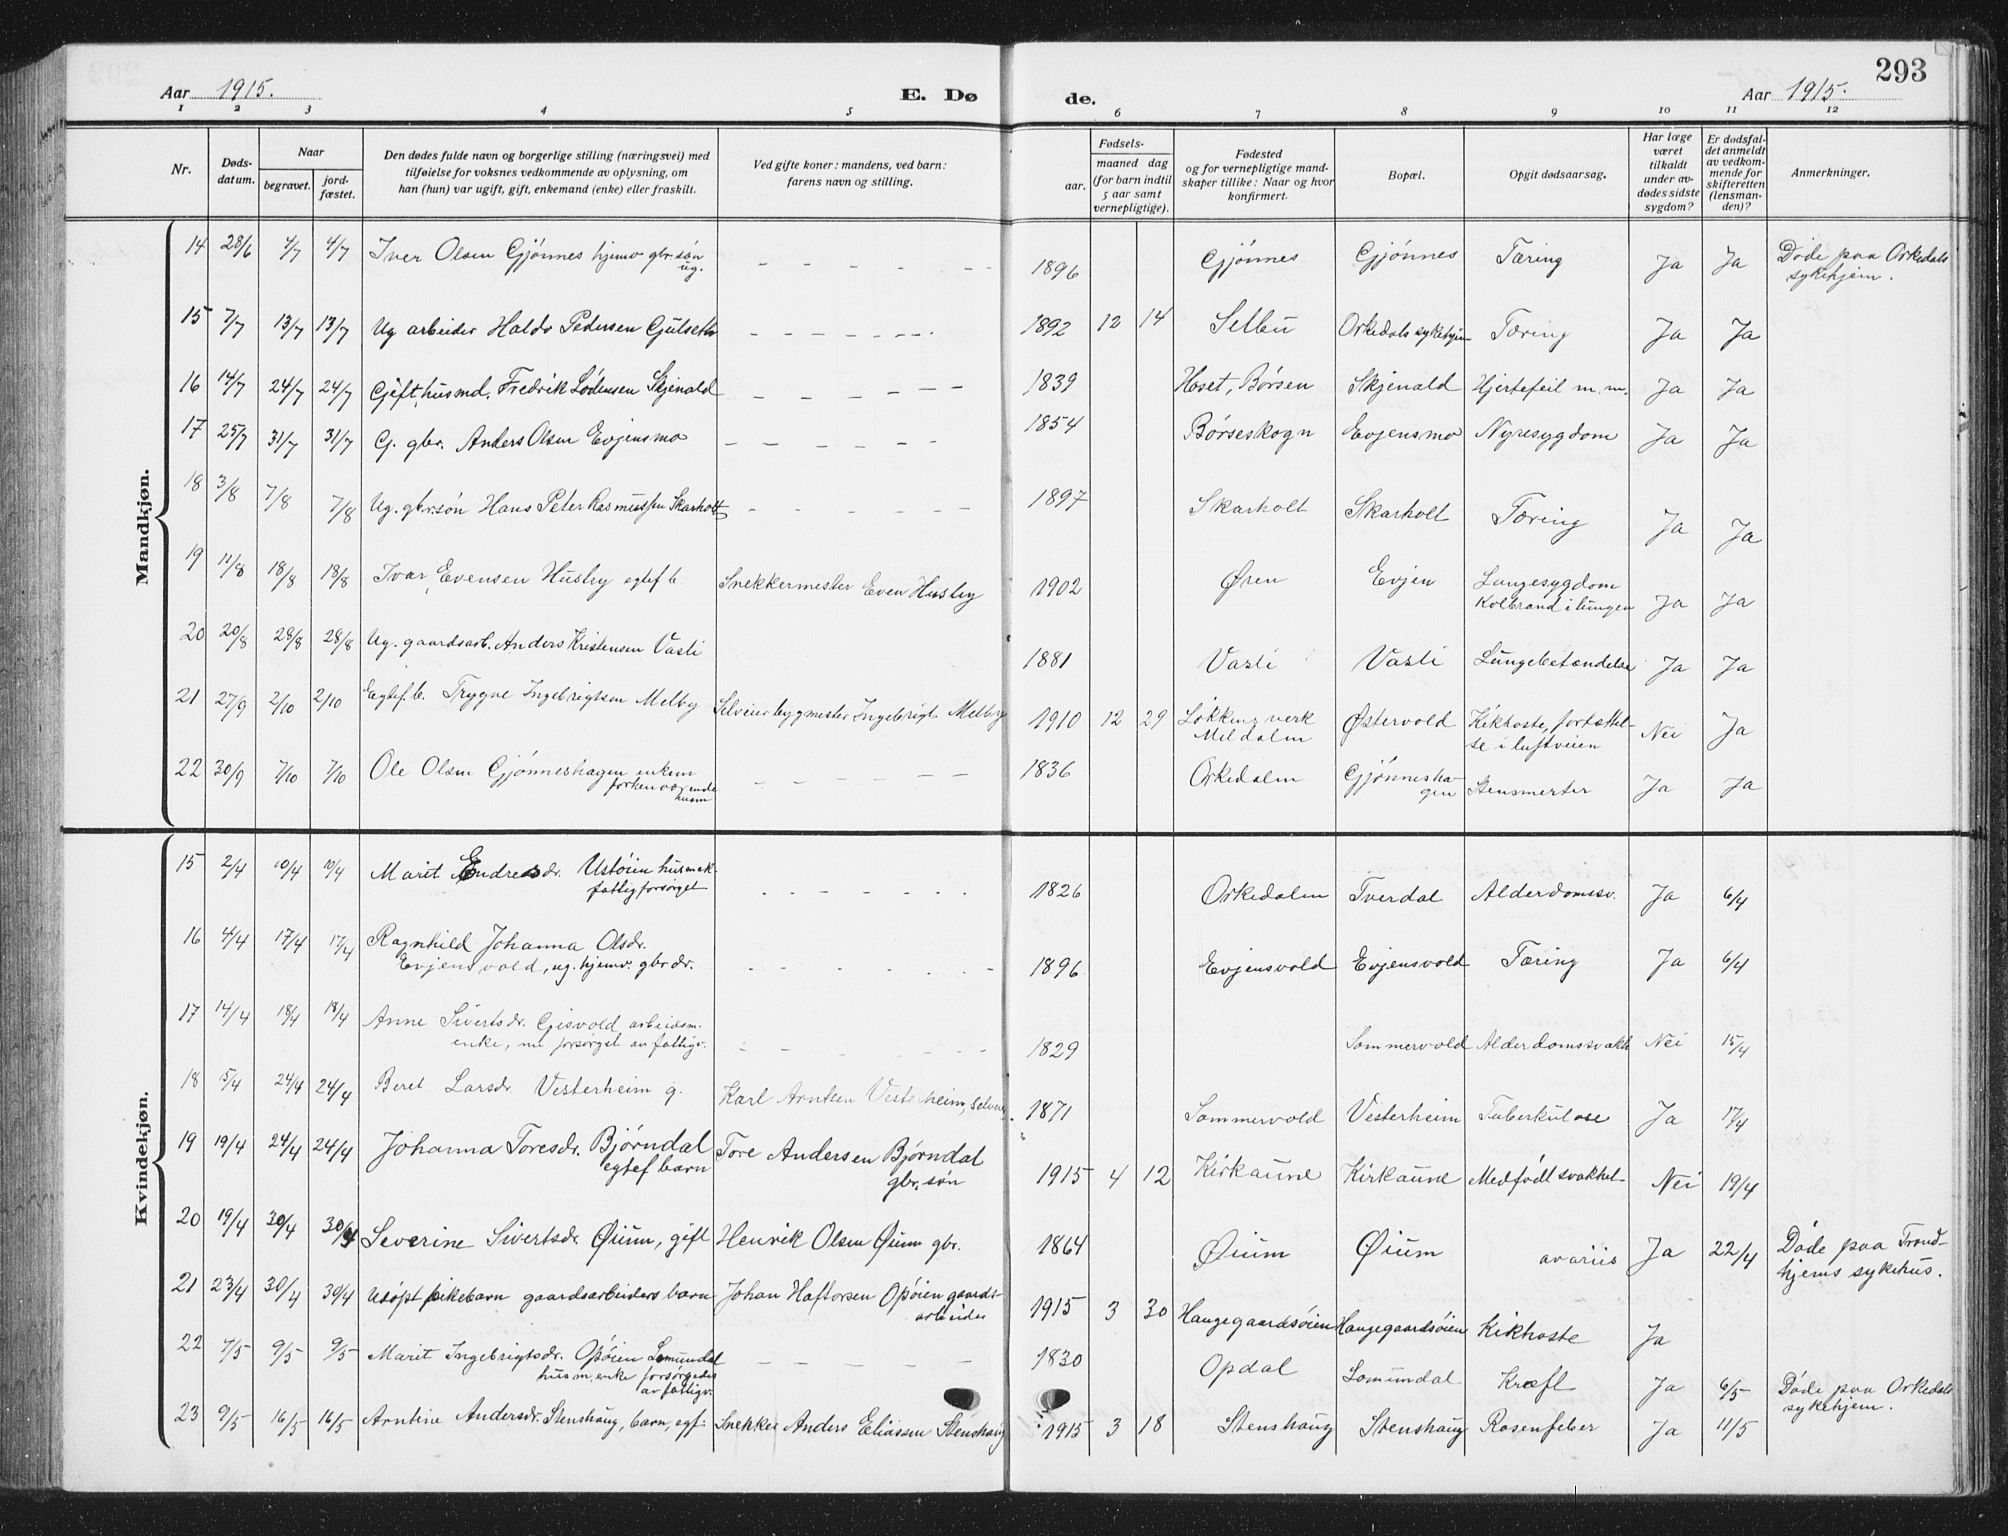 293
Aar 1915. E. Døde. Aar 1915.
1 2 3 4 5 6 7 8 9 10 11 12
Nr.
Døds-datum.
Naar
begravet.
jord-fæstet.
Den dødes fulde navn og borgerlige stilling (næringsvei) med
tilføielse for voksnes vedkommende av oplysning, om
han (hun) var ugift, gift, enkemand (enke) eller fraskilt.
Ved gifte koner: mandens, ved barn:
farens navn og stilling.
Fødsels-
aar.
maaned dag
(for barn indtil
5 aar samt
vernepligtige).
Fødested
og for vernepligtige mand-
skaper tillike: Naar og hvor
konfirmert.
Bopæl.
Opgit dødsaarsag.
Har læge
været
tilkaldt
under av-
dødes sidste
sygdom?
Er dødsfal-
det anmeldt
av vedkom-
mende for
skifteretten
(lensman-
den)?
Anmerkninger.
Mandkjøn.
14 28/6 4/7 4/7 Iver Olsen Gjønnes hjemv gbr.søn ug. 1896 Gjønnes Gjønnes Tæring Ja Ja Døde paa Orkedals sykehjem.
15 7/7 13/7 13/7 Ug arbeider Haldo Pedersen Gjulseth 1892 12 14 Selbu Orkedals sykehjem Tæring Ja Ja
16 14/7 24/7 24/7 Gift husmd. Fredrik Lorensen Skjenald 1839 Hoset, Børsen Skjenald Hjertefeil m.m. Ja Ja
17 25/7 31/7 31/7 G. gbr. Anders Olsen Evjensmo 1854 Børseskogn Evjensmo Nyresygdom Ja Ja
18 3/8 7/8 7/8 Ug. gbr.søn Hans Peter Rasmussen Skarholt 1897 Skarholt Skarholt Tæring Ja Ja
19 11/8 18/8 18/8 Ivar Evensen Husby egtef b. Snekkermester Even Husby 1902 Øren Evjen Lungesygdom Kolbrand i lungen Ja Ja
20 20/8 28/8 28/8 Ug. gaardsarb. Anders Kristensen Vasli 1881 Vasli Vasli Lungebetændelse Ja Ja
21 27/9 2/10 2/10 Egtef. b. Trygve Ingebrigtsen Melby Selveier bygmester Ingebrigt Melby 1910 12 29 Løkkens verk Meldalen Østervold Kikhoste, fortættelse i luftveien Nei Ja
22 30/9 7/10 7/10 Ole Olsen Gjønneshagen enkem forhenværende husm 1836 Orkedalen Gjønneshagen Stensmerter Ja Ja
Kvindekjøn.
15 2/4 10/4 10/4 Marit Endresdr. Ustøien husm.ek. fattigforsørget 1826 Orkedalen Tverdal Alderdomssv. Ja 6/4
16 4/4 17/4 17/4 Ragnhild Johanna Olsdr. Evjensvold, ug. hjemv. gbr.dr. 1896 Evjensvold Evjensvold Tæring Ja 6/4
17 14/4 18/4 18/4 Anne Sivertsdr. Gisvold arbeidsm. enke, nu forsørget av fattigv. 1829 Sommervold Alderdomssvakh Nei 15/4
18 15/4 24/4 24/4 Beret Larsdr Vesterheim g. Karl Arntsen Vesterheim, selveier 1871 Sommervold Vesterheim Tuberkulose Ja 17/4
19 19/4 24/4 24/4 Johanna Toresdr. Bjørndal egtef barn Tore Andersen Bjørndal gbr.søn 1915 4 12 Kirkaune Kirkaune Medfødt svakhet Nei 19/4
20 19/4 30/4 30/4 Severine Sivertsdr. Øium, gift Henrik Olsen Øium gbr. 1864 Øium Øium Ja 22/4 Døde paa Trondhjems sykehus.
21 23/4 30/4 30/4 Udøpt pikebarn gaardsarbeiders barn Johan Haftorsen Opøien gaardsarbeider 1915 3 30 Haugegaardsøien Haugegaardsøien Kikhoste Ja
22 7/5 9/5 9/5 Marit Ingebrigtsdr. Opøien Lomundal husm. enke forsørgedes av fattigv. 1830 Opdal Lomundal Kræft Ja 6/5 Døde paa Orkedals sykehjem.
23 9/5 16/5 16/5 Arntine Andersdr. Stenshaug, barn, egf. Snekker Anders Eliassen Stenshaug 1915 3 18 Stenshaug Stenshaug Rosenfeber Ja 11/5